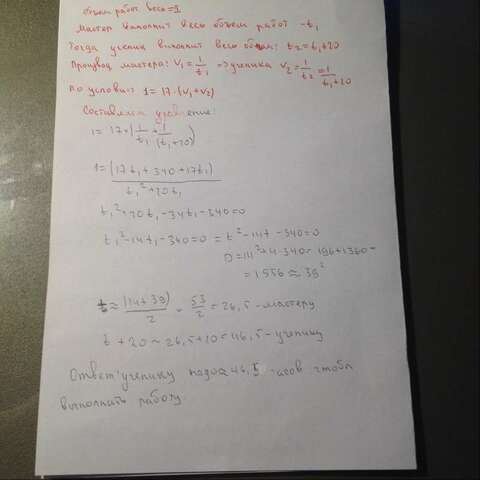 Объем работ весь=1
Мастер выполнит весь объем работ - t₁
Тогда ученик выполнит весь объем: t₂=t₁+20
Производ мастера: v₁=1/t₁ => ученика v₂=1/t₂=1/t₁+20
по условию 1=17·(v₁+v₂)
Составляем уравнение:
1=17*(1/t₁+1/(t₁+20))
1=(17t₁+340+17t₁)/t₁²+20t₁
t₁²+20t₁-34t₁-340=0
t₁²-14t₁-340=0 = t²-14t-340=0
D=14²+4·340=196+1360=
=1556≈39²
t≈(14+39)/2=53/2=26,5-мастеру
t+20≈26,5+20=46,5-ученику
Ответ: ученику надо≈46,5 часов чтобы
выполнить работу.